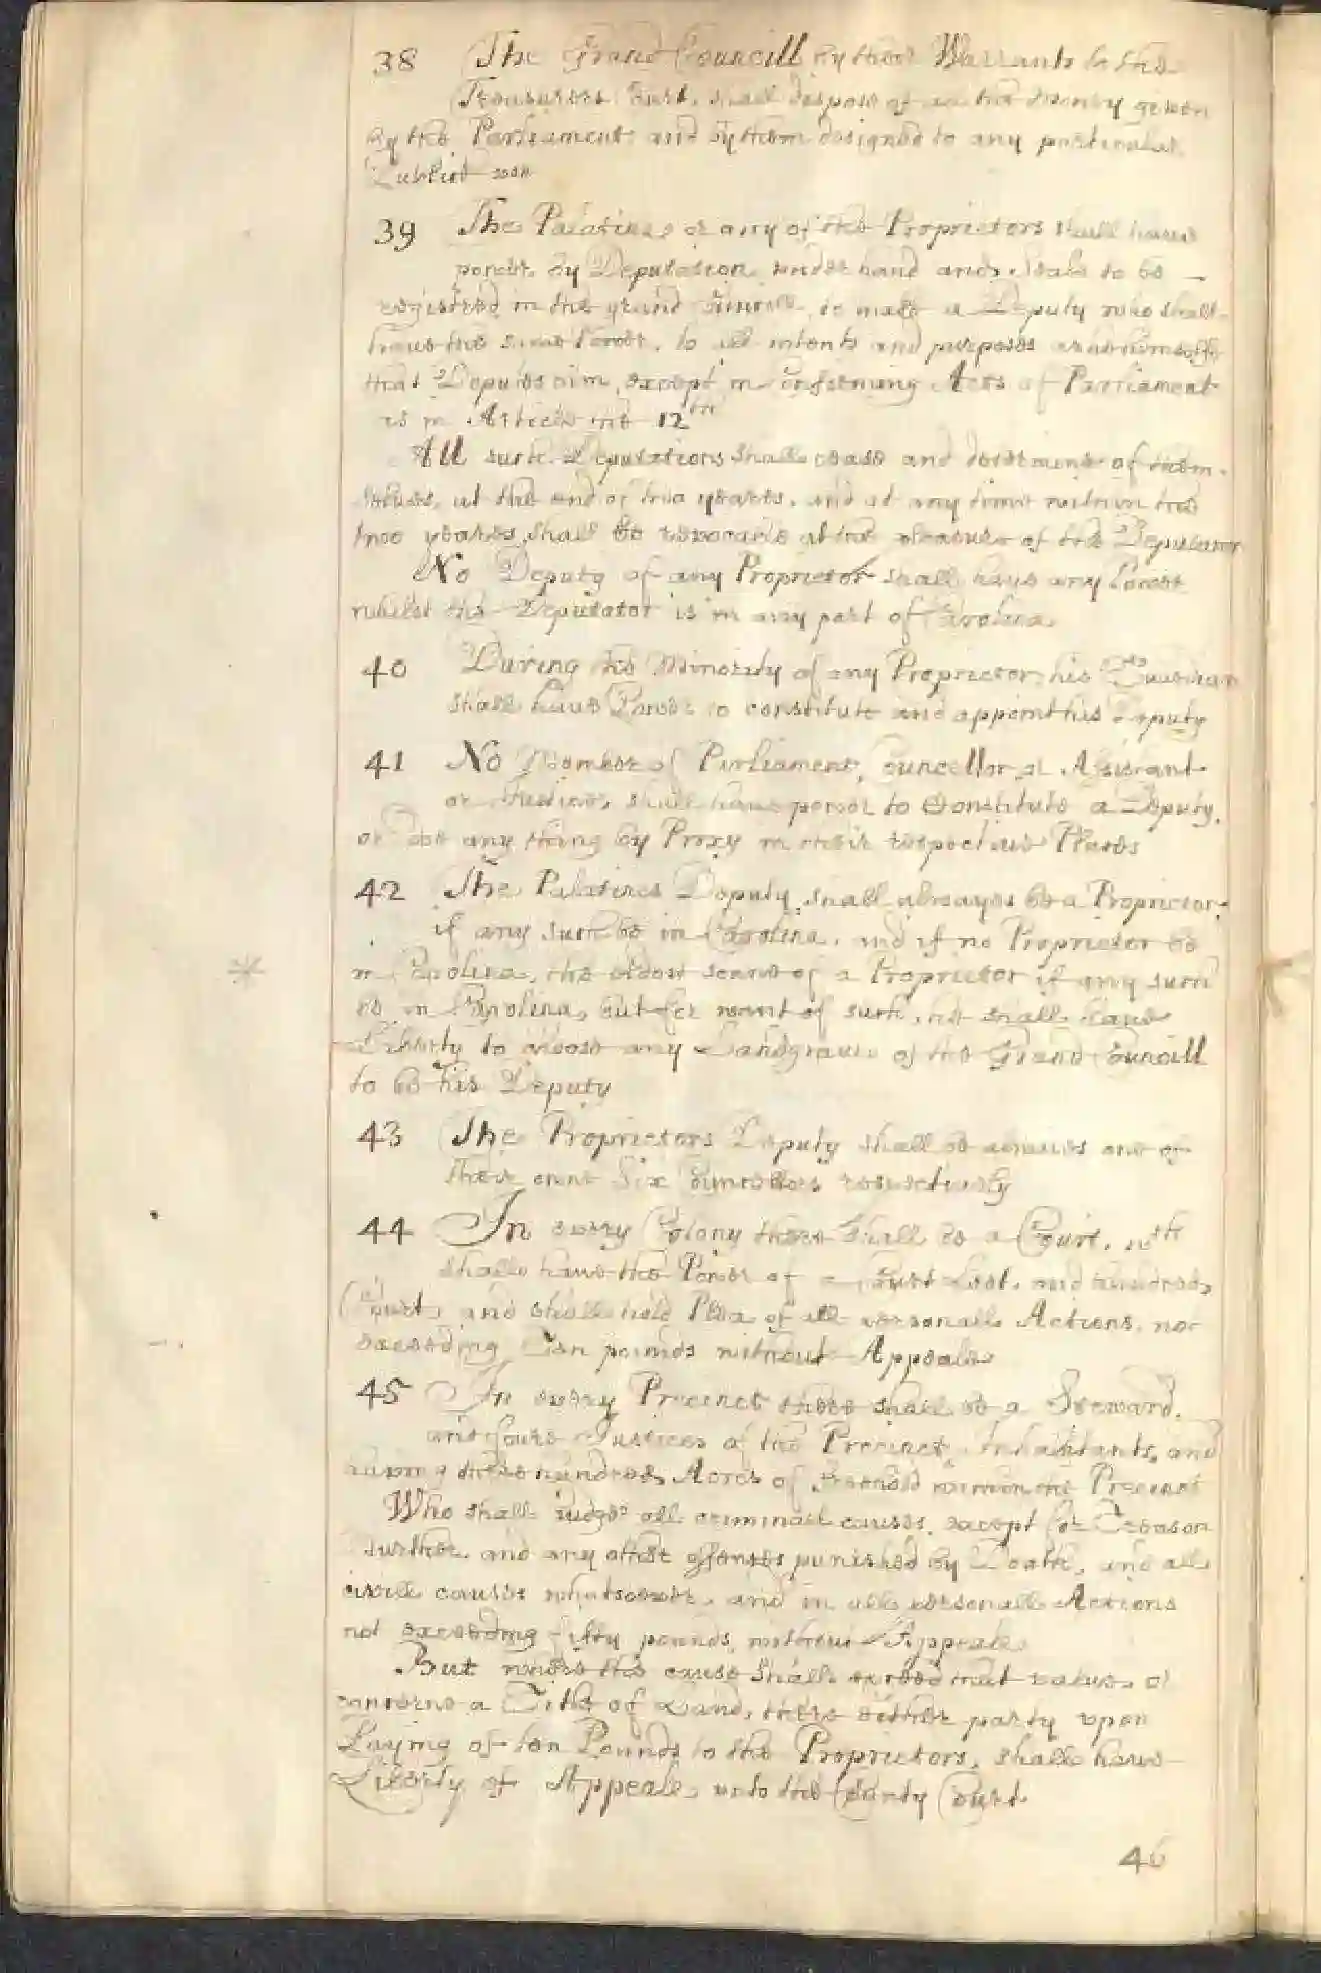 38 The Grand Councill by their Warrants to the
Treasurers Court, shall dispose of all the money given
by the Parliament and by them designed to any particular
Publick use
39 The Palatine or any of the Proprietors shall have
power by Deputation under hand and Seale to be
registred in the grand Councill, to make a Deputy who shall
have the same Power, to all intents and purposes as
that Deputes him, except in Confirming Acts of Parliament
as in Article the 12th
All such Deputations shall cease and determine of them-
selves, at the end of two yeares, and at any time within the
two yeares shall be revocable at the pleasure of the Deputator
No Deputy of any Proprietor shall have any Power
whilst the Deputator is in any part of Carolina
40 During the Minority of any Proprietor his Guardian
shall have Power to constitute and appoint his Deputy
41 No Member of Parliament, Councellor or Assistant
or Justice, shall have power to Constitute a Deputy,
or doe any thing by Proxy in their respective Places
42 The Palatines Deputy shall alwayes be a Proprietor,
if any such be in Carolina, and if no Proprietor be
in Carolina, the eldest sonne of a Proprietor if any such
be in Carolina, but for want of such, he shall have
Liberty to choose any Landgrave of the Grand Councill
to be his Deputy
43 The Proprietors Deputy shall be alwaies one of
their owne Six Councellors respectively
44 In every Colony there shall be a Court, wch
shall have the Power of a Court Leet, and hundred
Court, and shall hold Plea of all personall Actions, not
exceeding Ten pounds without Appeale
45 In every Precinct there shall be a Steward,
and foure Justices of the Precinct, Inhabitants, and
having three hundred Acres of freehold within the Precinct
Who shall judge all criminall causes, except for Treason
Murther, and any other offenses punished by Death, and all
civill causes whatsoever, and in all personall Actions
not exceeding fifty pounds, without Appeale
But where the cause shall exceed that value, or
concerne a Title of Land, there either party upon
Paying of ten Pounds to the Proprietors, shall have
Liberty of Appeale, unto the County Court
46